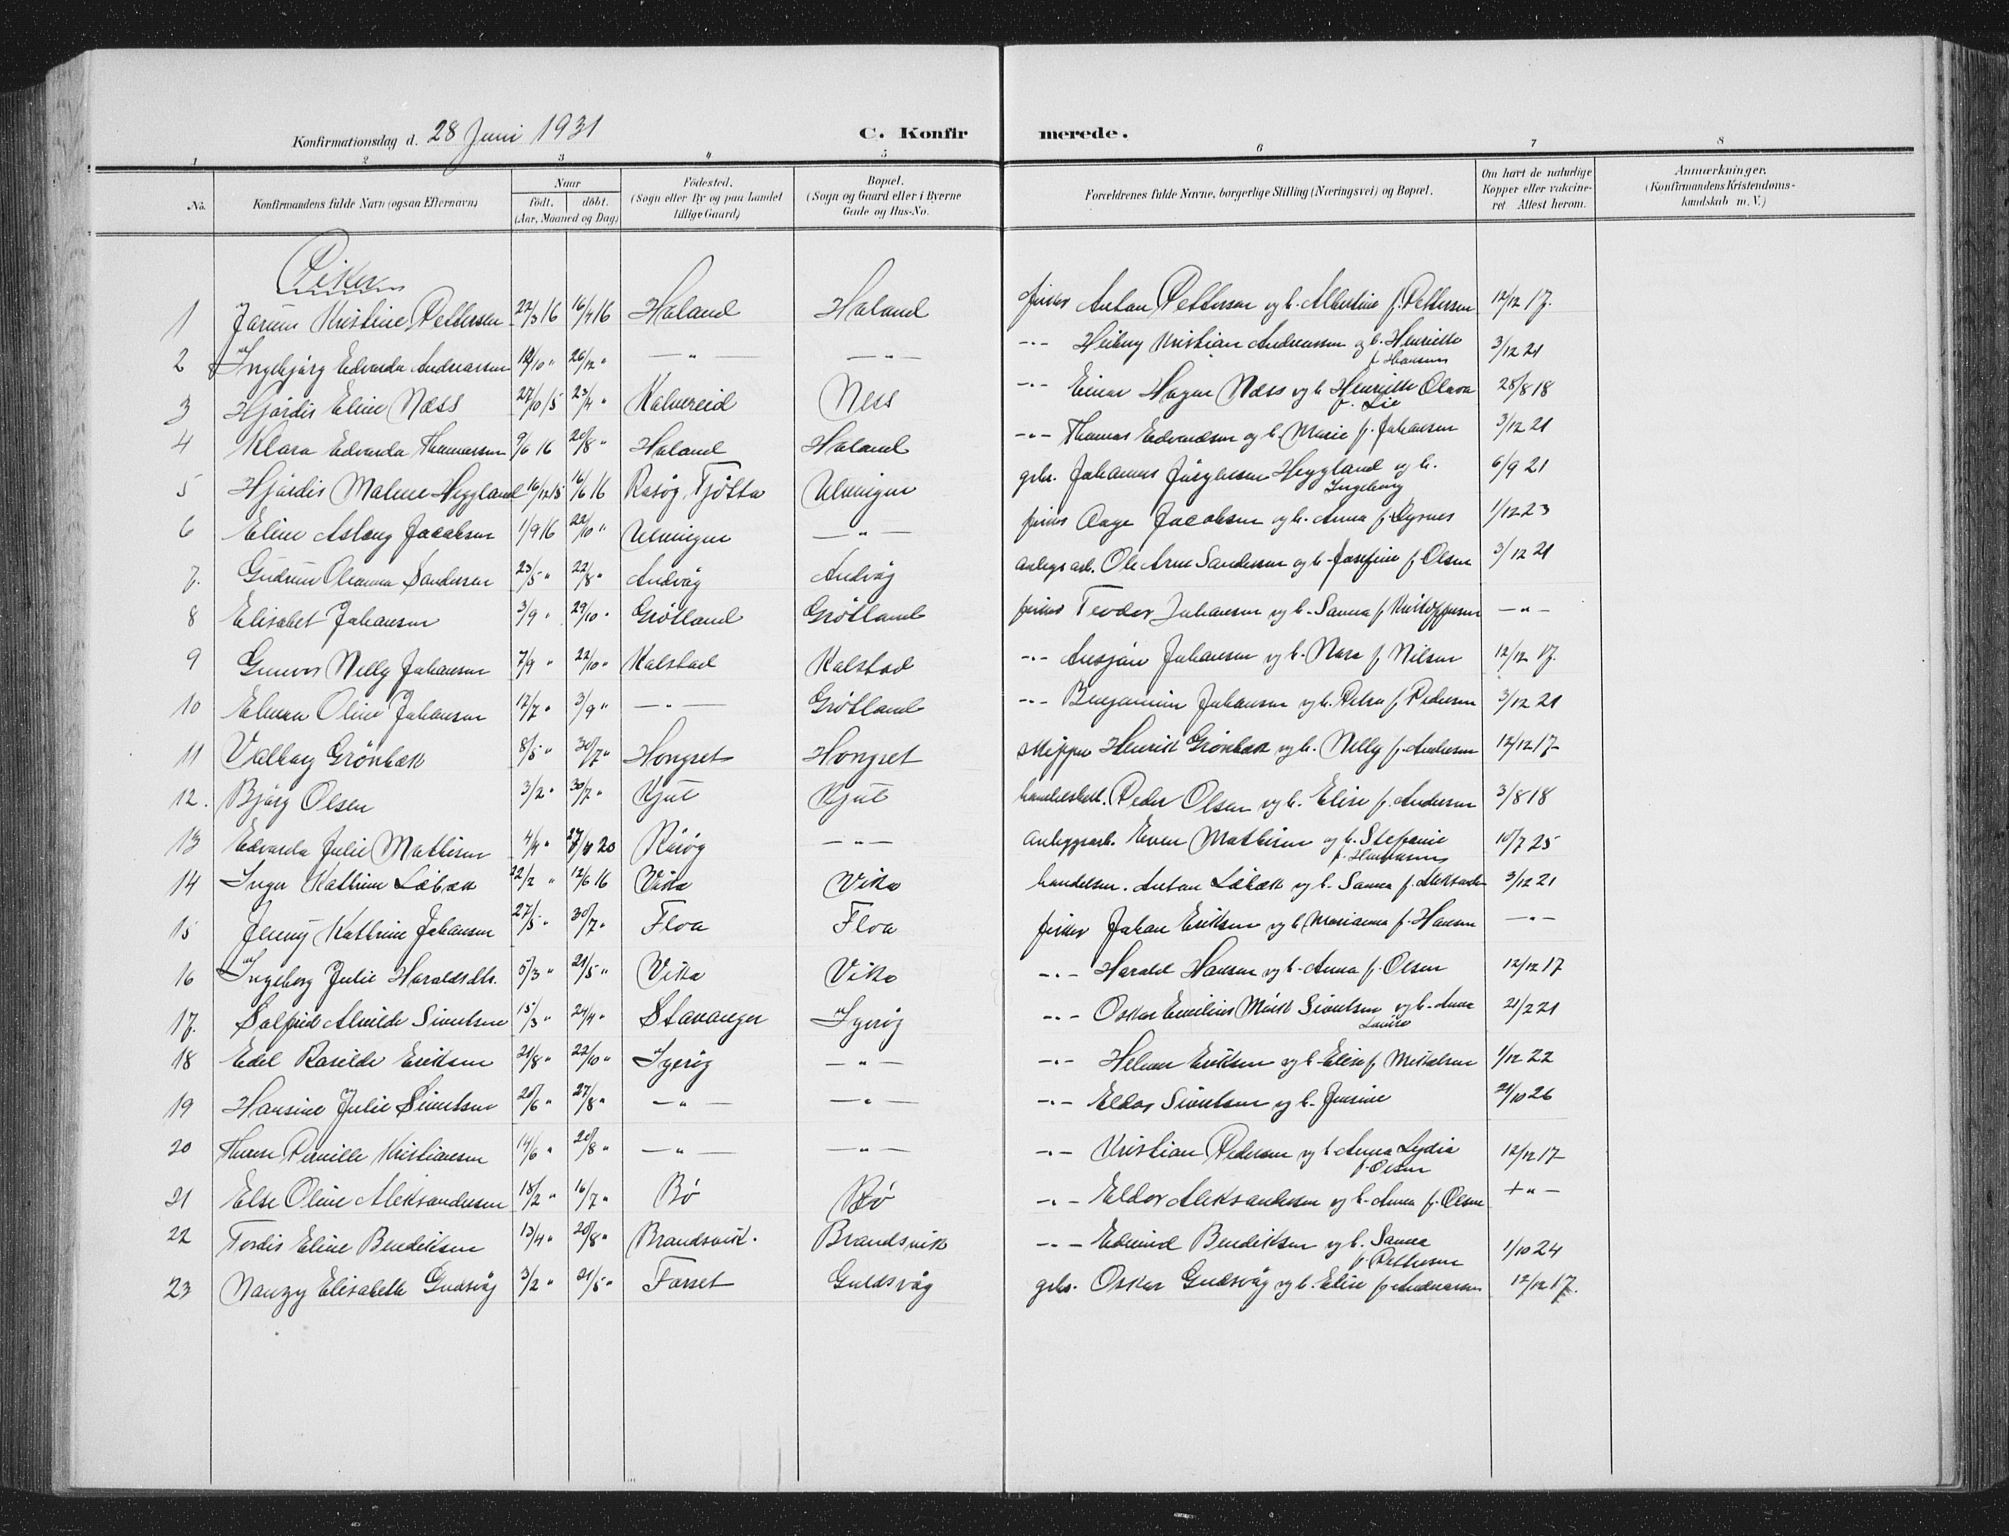 Konfirmationsdag d. 28 Juni 1931
C. Konfirmerede.
1 2 3 4 5 6 7 8
No. Konfirmandens fulde Navn (ogsaa Efternavn) Naar født. døbt. (Aar, Maaned og Dag) Fødested. (Sogn eller By og paa Landet tillige Gaard) Bopæl. (Sogn og Gaard eller i Byerne Gade og Hus-No. Forældrenes fulde Navne, borgerlige Stilling (Næringsvei) og Bopæl. Om havt de naturlige Kopper eller vakcineret. Attest herom. Anmærkninger. (Konfirmandens Kristendomskundskab m. V.)
Piker
1 Kristine Pettersen 22/3 16 16/4 16 Haland Haland fisker Anton Pettersen og h. Albertine f. Pettersen 12/12 17.
2 Ingebjørg Edvarda Andreassen /10 " 26/12 " — " — — " — -"- Kristian Andreassen og h. Henriette f. Hansen 3/12 21
3 Hjørdis Eline Næss 27/10 15 23/4 " Kalvereid Ness -"- Einar Hagen Næss og h. Henriette Olava f. Lie 28/8 18
4 Klara Edvarda Thomassen 9/6 16 20/8 " Haland Haland -"- Thomas Edvardsen og h. Marie f. Johansen 3/12 21
5 Hjørdis Malene Heggland 16/12 15 16/6 16 Rosøy, Tjøtta Ulvingen gbr. Johannes Jørgensen Heggland og h. Ingeborg 6/9 21
6 Eline Aslaug Jacobsen 1/9 16 22/10 " Ulvingen — " — fisker Aage Jacobsen og h. Anna f. Dyrnes 1/12 23
7. Gudrun Oleanna Sandersen 23/5 " 22/8 " Andvåg Andvåg anlegsarb. Ole Arne Sandersen og h. Josefine f. Olsen 3/12 21
8 Elisabet Johansen 3/9 " 29/10 " Grøtland Grøtland fisker Teodor Johansen og h. Sanna f. Kristoffersen — " —
9 Gunvor Nelly Johansen 7/9 " 22/10 " Kalstad Kalstad -"- Johansen og h. Nora f. Nilsen 12/12 17.
10 Oline Johansen 12/7 " 3/9 " — " — Grøtland -"- Benjamin Johansen og h. Petra f. Pedersen 3/12 21
11 Valborg Grønbæk 8/5 " 30/7 " Hongset Hongset skipper Henrik Grønbæk og h. Nelly f. Andersen 12/12 17-
12. Bjørg Olsen 3/2 " 30/7 " Kjul Kjul Peder Olsen og h. Elise f. Andersen 3/8 18
13 Edvarda Julie Mathisen 4/4 " 20 Røsøy — " — anleggsarb. Even Mathisen og h. Stefanie f. Hermansen 10/7 25
14 Inger Kathrine Løbæk 22/2 " 12/6 16 Vika Vika handelsm. Anton Løbæk og h. Sanna f. 3/12 21
15 Jenny Kathrine Johansen 27/5 " 30/7 " Floa Floa fisker Johan Eriksen og h. Marianna f. Hansen — " —
16 Ingeborg Julie Haraldsdtr. 5/3 " 21/5 " Vika Vika -"- Harald Hansen og h. Anna f. Olsen 12/12 17
17. Solfrid Alvilde Sivertsen 15/3 " 24/4 " Stavanger Igerøy -"- Oskar Emilius Sivertsen og h. Anna 21/2 21
18 Edel Rasilde Eriksen 21/8 " 22/10 " Igerøy — " — -"- Helmer Eriksen og h. Elise f. Mikkelsen 1/12 22
19 Hansine Julie Sivertsen 20/6 " 27/8 " — " — — " — -"- Eldor Sivertsen og h. Jensine 21/10 26
20 Pernille Kristiansen 14/6 " 20/8 " — " — — " — -"- Kristian Pedersen og h. Anna Lydia f. Olsen 12/12 17-
21 Else Oline Aleksandersen 18/2 " 16/7 " Bø Bø -"- Eldor Aleksandersen og h. Anna f. Olsen — " —
22 Tordis Eline Bendiksen 13/4 " 20/8 " Brandsvik. Brandsvik -"- Edvind Bendiksen og h. Sanna f. Pettersen 1/10 24
23 Nanzy Elisabeth Guldsvåg 3/2 " 21/5 " Forset Guldsvåg gbr. Oskar Guldsvåg og h. Elise f. Andreassen 12/12 17.